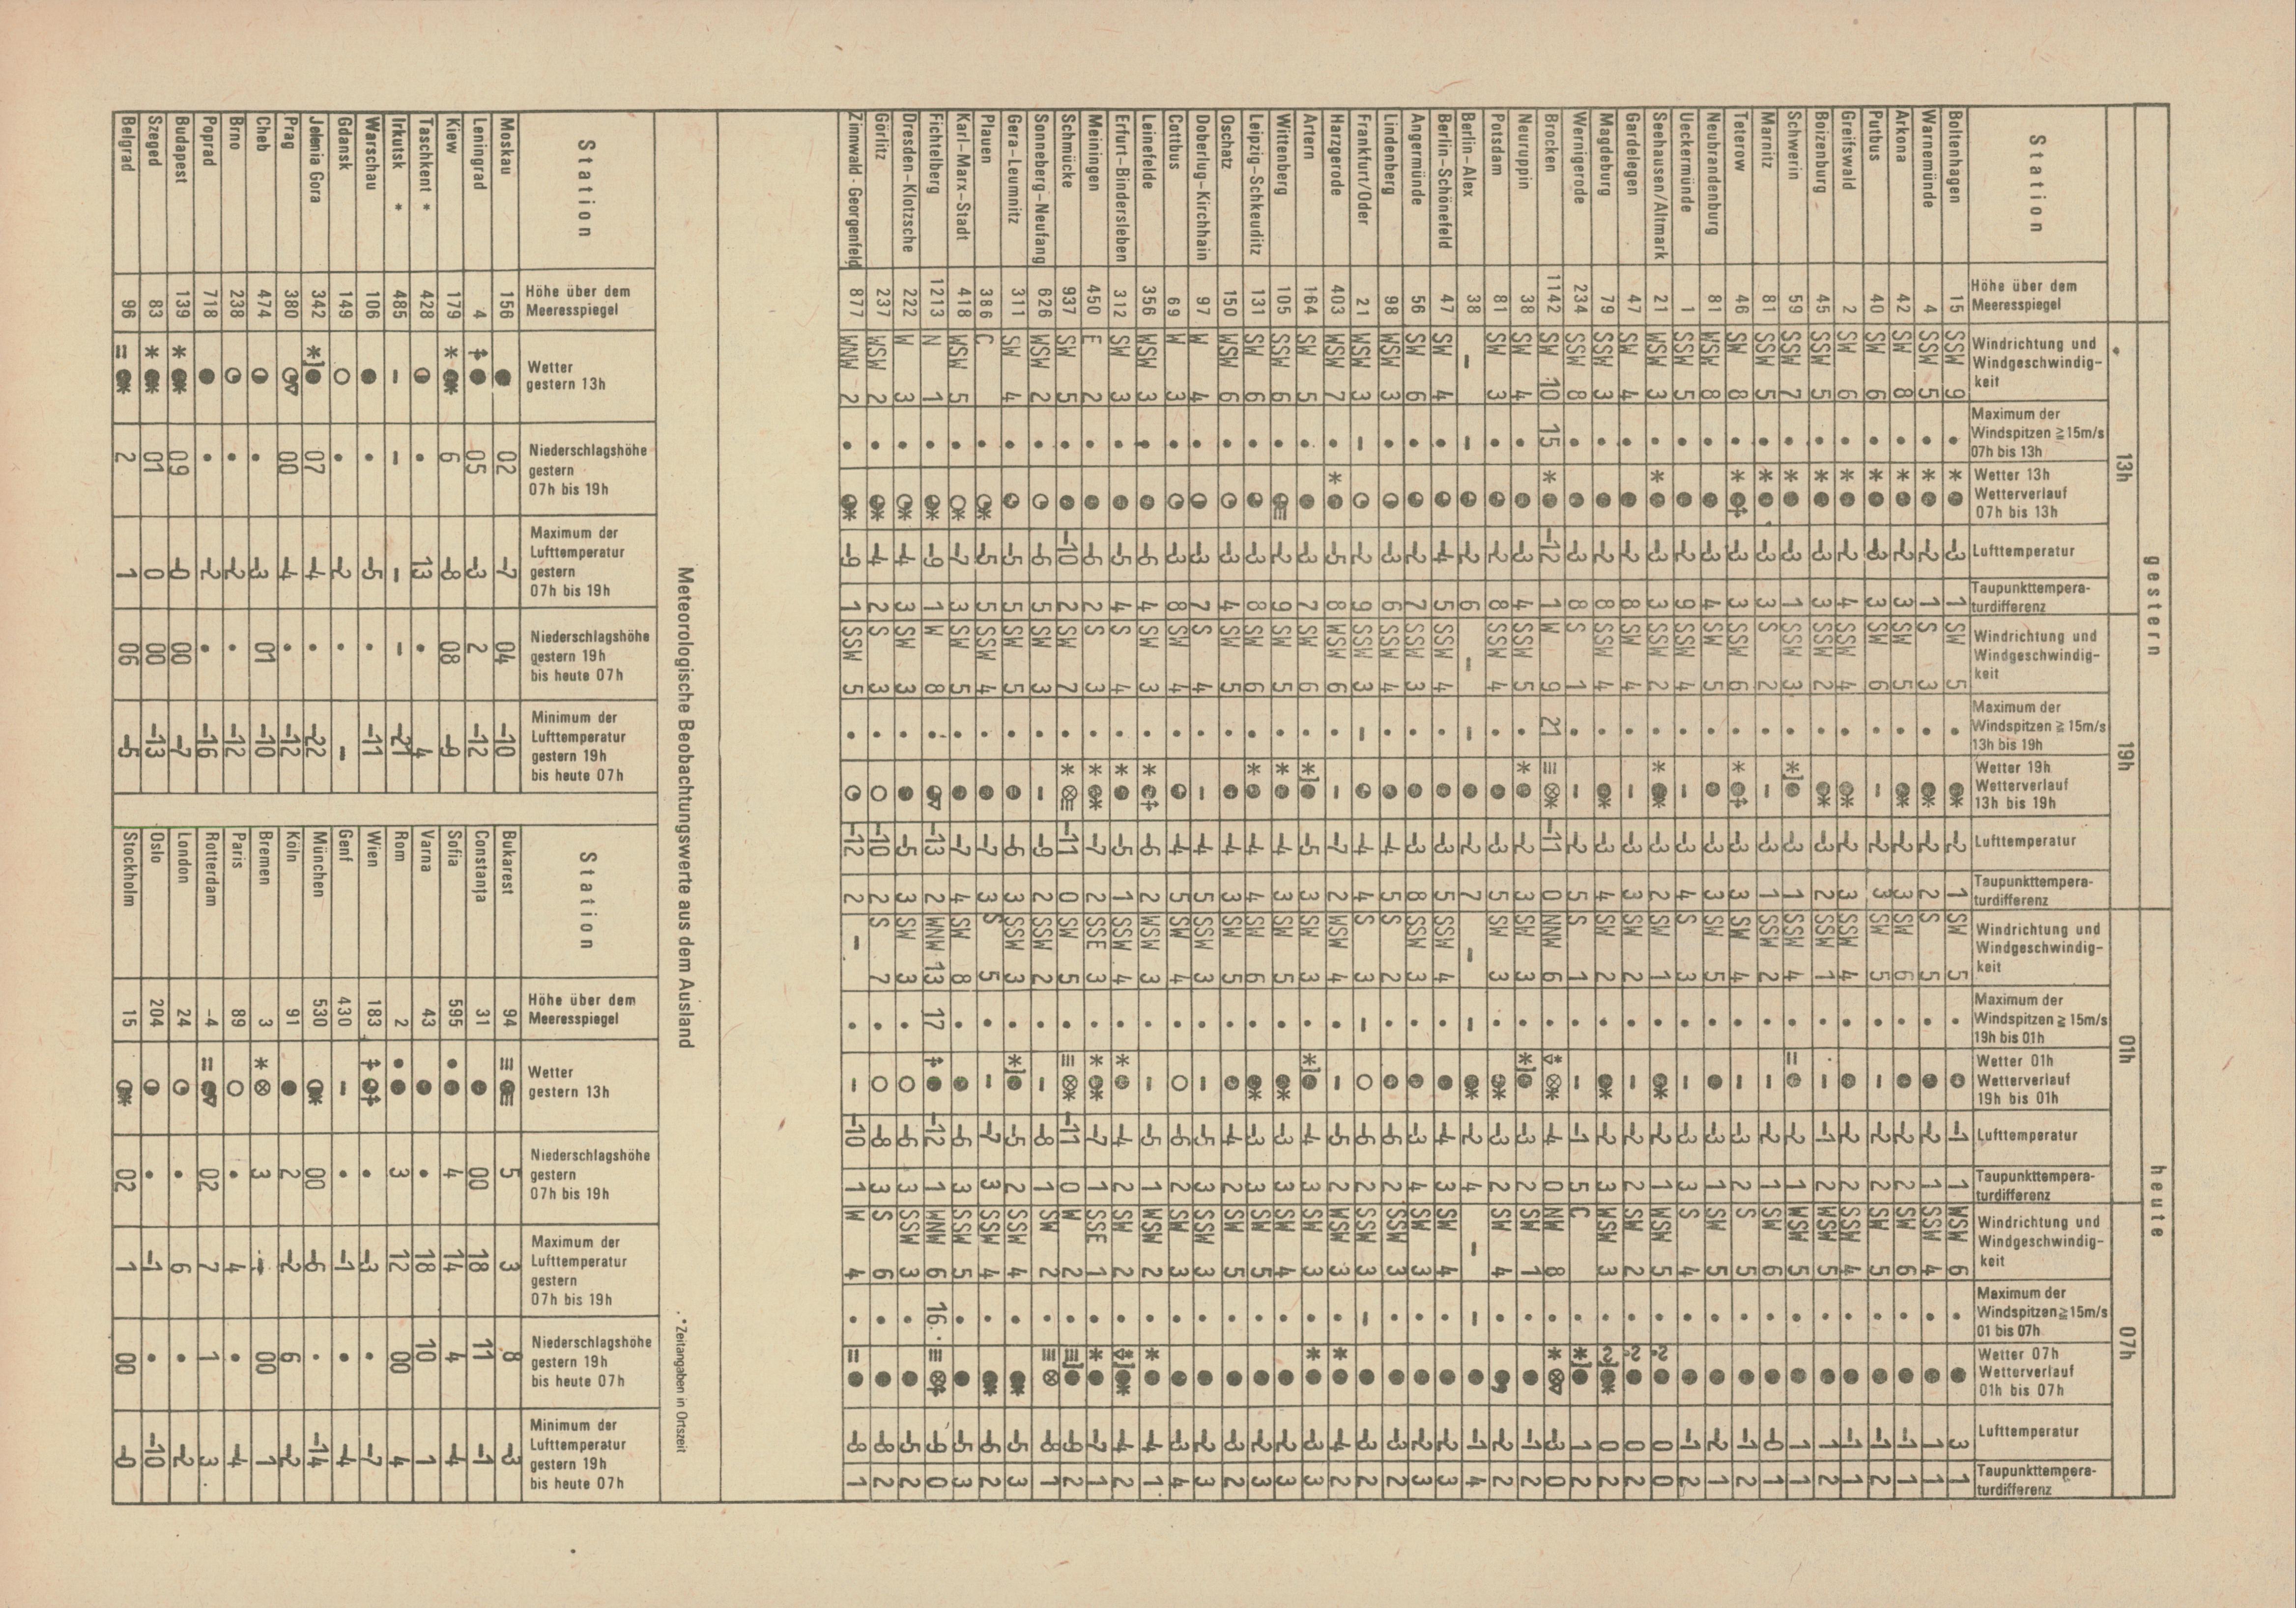 gestern heute
13h 19h 01h 07h
Station
Höhe über dem
Meeresspiegel
Windrichtung und
Windgeschwindig-
keit
Maximum der
Windspitzen ≧15m/s
07h bis 13h
Wetter 13h
Wetterverlauf
07h bis 13h
Lufttemperatur
Taupunkttempera-
turdifferenz
Windrichtung und
Windgeschwindig-
keit
Maximum der
Windspitzen ≧15m/s
13h bis 19h
Wetter 19h
Wetterverlauf
13h bis 19h
Lufttemperatur
Taupunkttempera-
turdifferenz
Windrichtung und
Windgeschwindig-
keit
Maximum der
Windspitzen ≧15m/s
19h bis 01h
Wetter 01h
Wetterverlauf
19h bis 01h
Lufttemperatur
Taupunkttempera-
turdifferenz
Windrichtung und
Windgeschwindig-
keit
Maximum der
Windspitzen ≧15m/s
01 bis 07h
Wetter 07h
Wetterverlauf
01h bis 07h
Lufttemperatur
Taupunkttempera-
turdifferenz
Boltenhagen 15 SSW 9 • -3 1 SW 5 • -2 1 SW 5 • -1 1 WSW 6 • 3 1
Warnemünde 4 SSW 5 • -2 1 S 3 • -2 2 S 5 • -2 1 SSW 4 • 1 1
Arkona 42 SW 8 • -2 3 SW 5 • -2 3 SW 6 • -2 2 SW 6 • -1 1
Putbus 40 SW 6 • -3 3 SW 6 • -2 3 SW 5 • -2 2 SW 5 • -1 2
Greifswald 2 SW 6 • -2 4 SSW 4 • -2 3 SSW 4 • -2 2 SSW 4 • -1 1
Boizenburg 45 SSW 5 • -3 3 SSW 2 • -3 2 SSW 1 • -1 2 WSW 5 • 1 2
Schwerin 59 SSW 7 • -3 1 SSW 3 • -3 1 SSW 4 • -2 1 WSW 5 • 1 1
Marnitz 81 SSW 5 • -3 3 S 2 • -3 1 SSW 2 • -2 1 SW 6 • -0 1
Teterow 46 SW 8 • -3 3 SSW 6 • -3 3 SW 4 • -3 2 S 5 • -1 2
Neubrandenburg 81 WSW 8 • -3 4 SW 5 • -3 3 SW 5 • -3 1 SW 5 • -2 1
Ueckermünde 1 SSW 5 • -2 9 SSW 4 • -3 4 S 3 • -3 3 S 4 • -1 2
Seehausen/Altmark 21 WSW 3 • -3 3 SSW 2 • -3 2 SW 1 • -2 1 WSW 5 • 0 0
Gardelegen 47 SW 4 • -2 8 SW 4 • -3 3 SW 2 • -2 2 SW 2 • 0 2
Magdeburg 79 SSW 3 • -2 8 SSW 4 • -3 4 SSW 2 • -2 3 WSW 3 • 0 2
Wernigerode 234 SSW 8 • -3 8 S 1 • -2 5 S 1 • -1 5 C • 1 2
Brocken 1142 SW 10 15 -12 1 W 9 21 -11 0 NNW 6 • -4 0 NW 8 • -3 0
Neuruppin 38 SW 4 • -3 4 SSW 5 • -2 3 SW 3 • -3 2 SW 1 • -1 2
Potsdam 81 SW 3 • -2 8 SSW 4 • -3 5 SW 3 • -3 2 SW 4 • -2 2
Berlin-Alex 38 – – -2 6 – – -2 7 – – -2 4 – – -1 4
Berlin-Schönefeld 47 SW 4 • -4 5 SSW 4 • -3 5 SSW 4 • -4 3 SW 4 • -2 3
Angermünde 56 SW 6 • -2 7 SSW 3 • -3 8 SSW 3 • -3 4 SW 3 • -2 3
Lindenberg 98 WSW 3 • -3 6 SSW 4 • -4 5 S 2 • -6 2 SSW 3 • -3 2
Frankfurt/Oder 21 WSW 3 – -2 9 SSW 3 – -4 4 S 3 – -6 2 SSW 3 – -3 2
Harzgerode 403 WSW 7 • -5 8 WSW 6 • -7 2 WSW 4 • -5 2 WSW 3 • -4 2
Artern 164 SW 5 • -3 7 SW 6 • -5 3 SW 3 • -4 3 SW 3 • -3 3
Wittenberg 105 SSW 6 • -2 9 SW 5 • -4 3 SW 5 • -3 3 SSW 4 • -2 3
Leipzig-Schkeuditz 131 SSW 6 • -3 9 SW 6 • -4 4 SW 6 • -3 3 SW 5 • -2 3
Oschatz 150 WSW 6 • -3 4 SW 5 • -4 3 SW 5 • -4 2 SW 5 • -3 2
Doberlug-Kirchhain 97 W 4 • -3 7 S 4 • -4 5 SSW 3 • -5 3 SSW 3 • -2 3
Cottbus 69 W 3 • -3 8 SW 4 • -4 5 SW 4 • -6 2 SW 3 • -3 4
Leinefelde 356 WSW 3 • -6 4 SW 3 • -6 2 WSW 3 • -5 1 WSW 2 • -4 1
Erfurt-Bindersleben 312 SW 3 • -5 4 S 4 • -5 1 SSW 4 • -4 2 SW 2 • -4 2
Meiningen 450 E 2 • -6 2 S 3 • -7 2 SSE 3 • -7 1 SSE 1 • -7 1
Schmücke 937 SW 5 • -10 2 SW 7 • -11 0 SW 5 • -11 0 W 2 • -9 2
Sonneberg-Neufang 626 WSW 2 • -6 5 SW 3 • -9 2 SSW 2 • -8 1 SW 2 • -8 1
Gera-Leumnitz 311 SW 4 • -5 5 SW 5 • -6 3 SSW 3 • -5 2 SSW 4 • -5 3
Plauen 386 C • -5 5 SSW 4 • -7 3 S 5 • -7 3 SSW 4 • -6 2
Karl-Marx-Stadt 418 WSW 5 • -7 3 SW 5 • -7 4 SW 8 • -6 3 SSW 5 • -5 3
Fichtelberg 1213 N 1 • -9 1 W 8 • -13 2 WNW 13 17 -12 1 WNW 6 16 -9 0
Dresden-Klotzsche 222 W 3 • -4 3 SW 3 • -5 3 SW 3 • -6 3 SSW 3 • -5 2
Görlitz 237 WSW 2 • -4 2 S 3 • -10 2 S 7 • -8 3 S 6 • -8 2
Zinnwald-Georgenfeld 877 WNW 2 • -9 1 SSW 5 • -12 2 – • -10 1 W 4 • -8 1
Meteorologische Beobachtungswerte aus dem Ausland
* Zeitangaben in Ortszeit
Station
Höhe über dem
Meeresspiegel
Wetter
gestern 13h
Niederschlagshöhe
gestern
07h bis 19h
Maximum der
Lufttemperatur
gestern
07h bis 19h
Niederschlagshöhe
gestern 19h
bis heute 07h
Minimum der
Lufttemperatur
gestern 19h
bis heute 07h
Moskau 156 02 -7 04 -10
Leningrad 4 05 -3 2 -12
Kiew 179 6 -8 08 -9
Taschkent * 428 • 13 • 4
Irkutsk * 485 – – – – -21
Warschau 106 • -5 • -11
Gdansk 149 • -2 • –
Jelenia Gora 342 07 -4 • -22
Prag 380 00 -4 • -12
Cheb 474 • -3 01 -10
Brno 238 • -2 • -12
Poprad 718 • -2 • -16
Budapest 139 09 -0 00 -7
Szeged 83 01 0 00 -13
Belgrad 96 2 1 06 -5
Station
Höhe über dem
Meeresspiegel
Wetter
gestern 13h
Niederschlagshöhe
gestern
07h bis 19h
Maximum der
Lufttemperatur
gestern
07h bis 19h
Niederschlagshöhe
gestern 19h
bis heute 07h
Minimum der
Lufttemperatur
gestern 19h
bis heute 07h
Bukarest 94 5 3 8 -3
Constanţa 31 00 18 11 -1
Sofia 595 4 14 4 -4
Varna 43 • 18 10 1
Rom 2 3 12 00 4
Wien 183 • -3 • -7
Genf 430 – • -1 • -4
München 530 00 -6 • -14
Köln 91 2 -2 6 -2
Bremen 3 3 00 1
Paris 89 • 4 • -4
Rotterdam -4 02 7 1 3
London 24 • 6 • -2
Oslo 204 • -1 • -10
Stockholm 15 02 1 00 -0